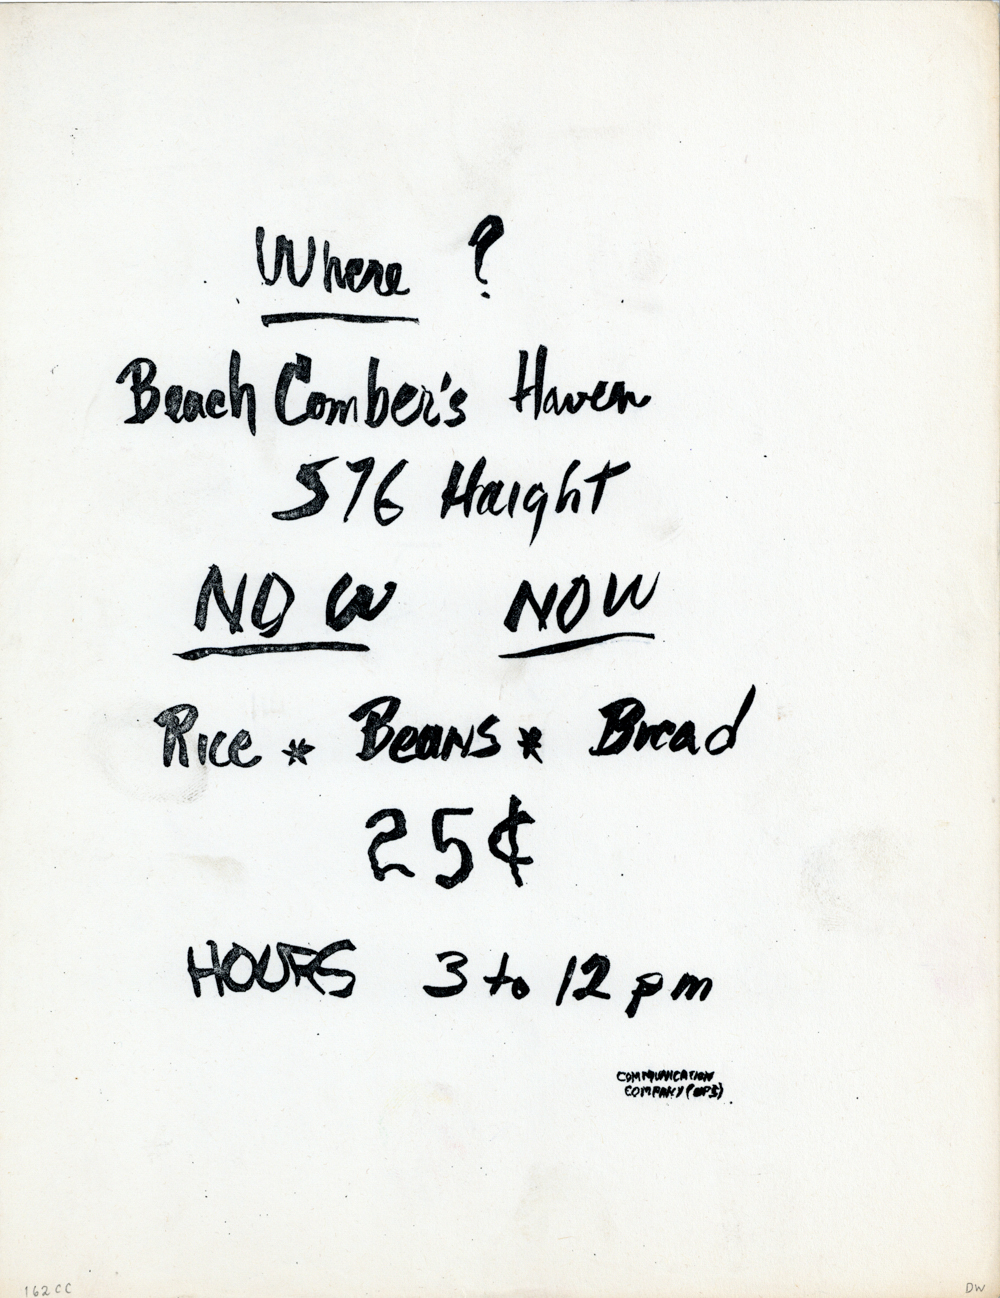 Where ?
Beach Comber's Haven
576 Haight
NOW NOW
Rice * Beans * Bread
25¢
HOURS 3 to 12 pm
COMMUNICATION
COMPANY (UPS)
162 CC
DW